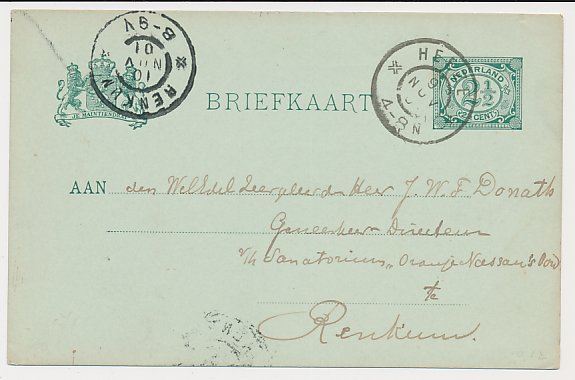 RENKUM
10 NOV 01
8-9V
HE
4-8N
NEDERLAND
2½
CENT
JE MAINTIENDRAI
BRIEFKAART
AAN den WelEdel Zeergeleerden Heer J. W. F. Donath
Geneesheer-Directeur
v/h Sanatorium "Oranje Nassau's Oord
te
Renkum.